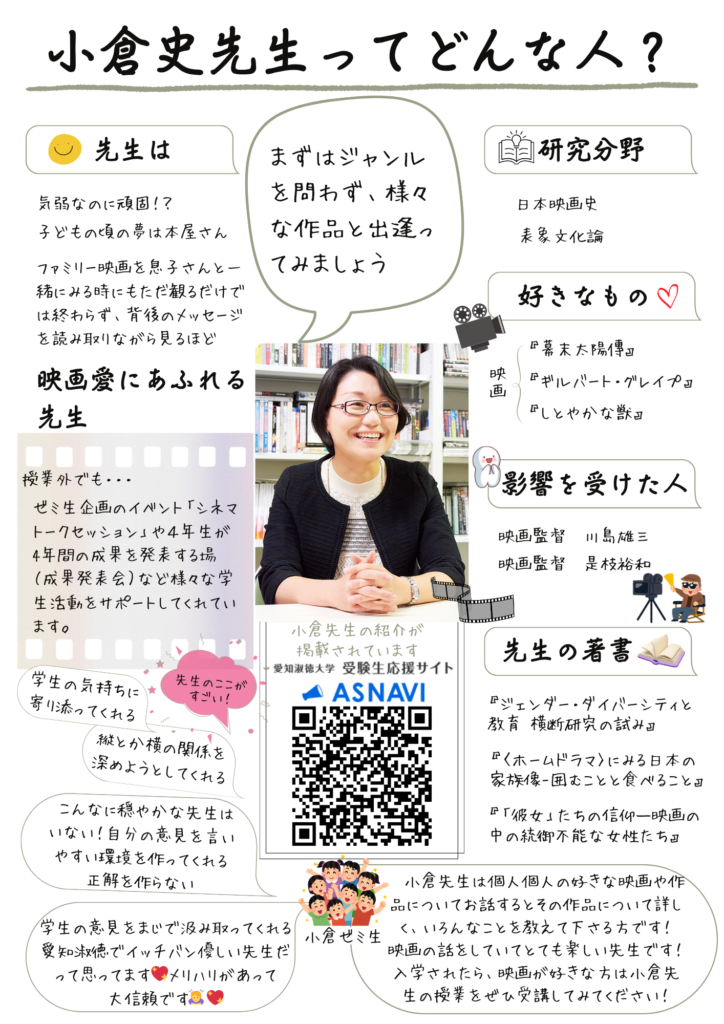 小倉史先生ってどんな人？
先生は
気弱なのに頑固！？
子どもの頃の夢は本屋さん
ファミリー映画を息子さんと一
緒にみる時にもただ観るだけで
は終わらず、背後のメッセージ
を読み取りながら見るほど
映画愛にあふれる
先生
授業外でも・・・
ゼミ生企画のイベント「シネマ
トークセッション」や4年生が
4年間の成果を発表する場
（成果発表会）など様々な学
生活動をサポートしてくれてい
ます。
まずはジャンル
を問わず、様々
な作品と出逢っ
てみましょう
研究分野
日本映画史
表象文化論
好きなもの
映画
『幕末太陽傳』
『ギルバート・グレイプ』
『しとやかな獣』
影響を受けた人
映画監督 川島雄三
映画監督 是枝裕和
先生の著書
『ジェンダー・ダイバーシティと
教育 横断研究の試み』
『〈ホームドラマ〉にみる日本の
家族像-囲むことと食べること』
『「彼女」たちの信仰―映画の
中の統御不能な女性たち』
小倉先生の紹介が
掲載されています
愛知淑徳大学 受験生応援サイト
ASNAVI
先生のここが
すごい！
学生の気持ちに
寄り添ってくれる
縦とか横の関係を
深めようとしてくれる
こんなに穏やかな先生は
いない！自分の意見を言い
やすい環境を作ってくれる
正解を作らない
学生の意見をまじで汲み取ってくれる
愛知淑徳でイッチバン優しい先生だ
って思ってます💖メリハリがあって
大信頼です🙇💖
小倉ゼミ生
小倉先生は個人個人の好きな映画や作
品についてお話するとその作品について詳し
く、いろんなことを教えて下さる方です！
映画の話をしていてとても楽しい先生です！
入学されたら、映画が好きな方は小倉先
生の授業をぜひ受講してみてください！